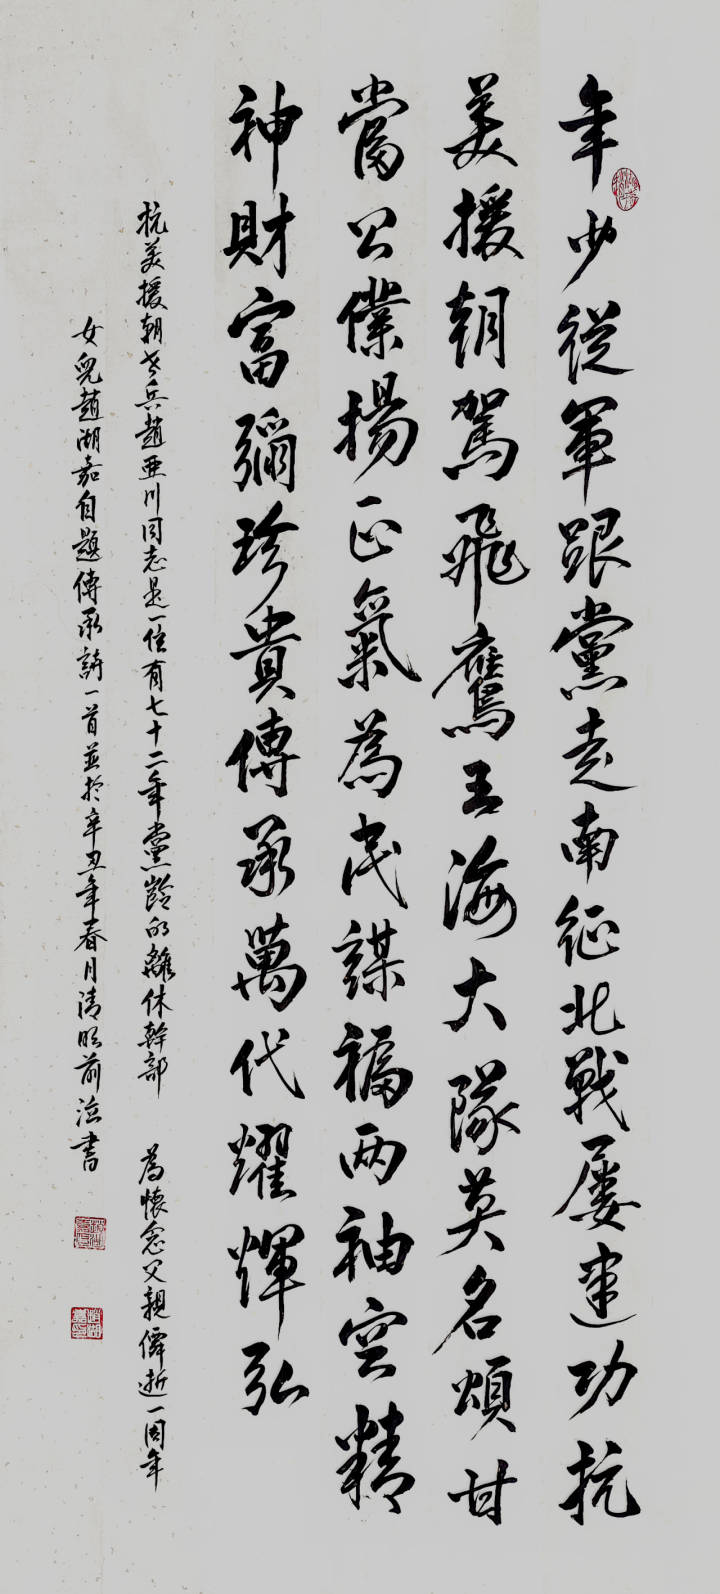 年少從軍跟黨走南征北戰屢建功抗
美援朝駕飛鷹王海大隊莫名頌甘
當公僕揚正氣為民謀福两袖空精
神財富彌珍貴傳承萬代耀輝弘
抗美援朝老兵趙亞川同志是一位有七十二年黨齡的離休幹部 為懷念父親僻逝一周年
女兒趙湖嘉自題傳承詩一首並於辛丑年春月清明前泣書